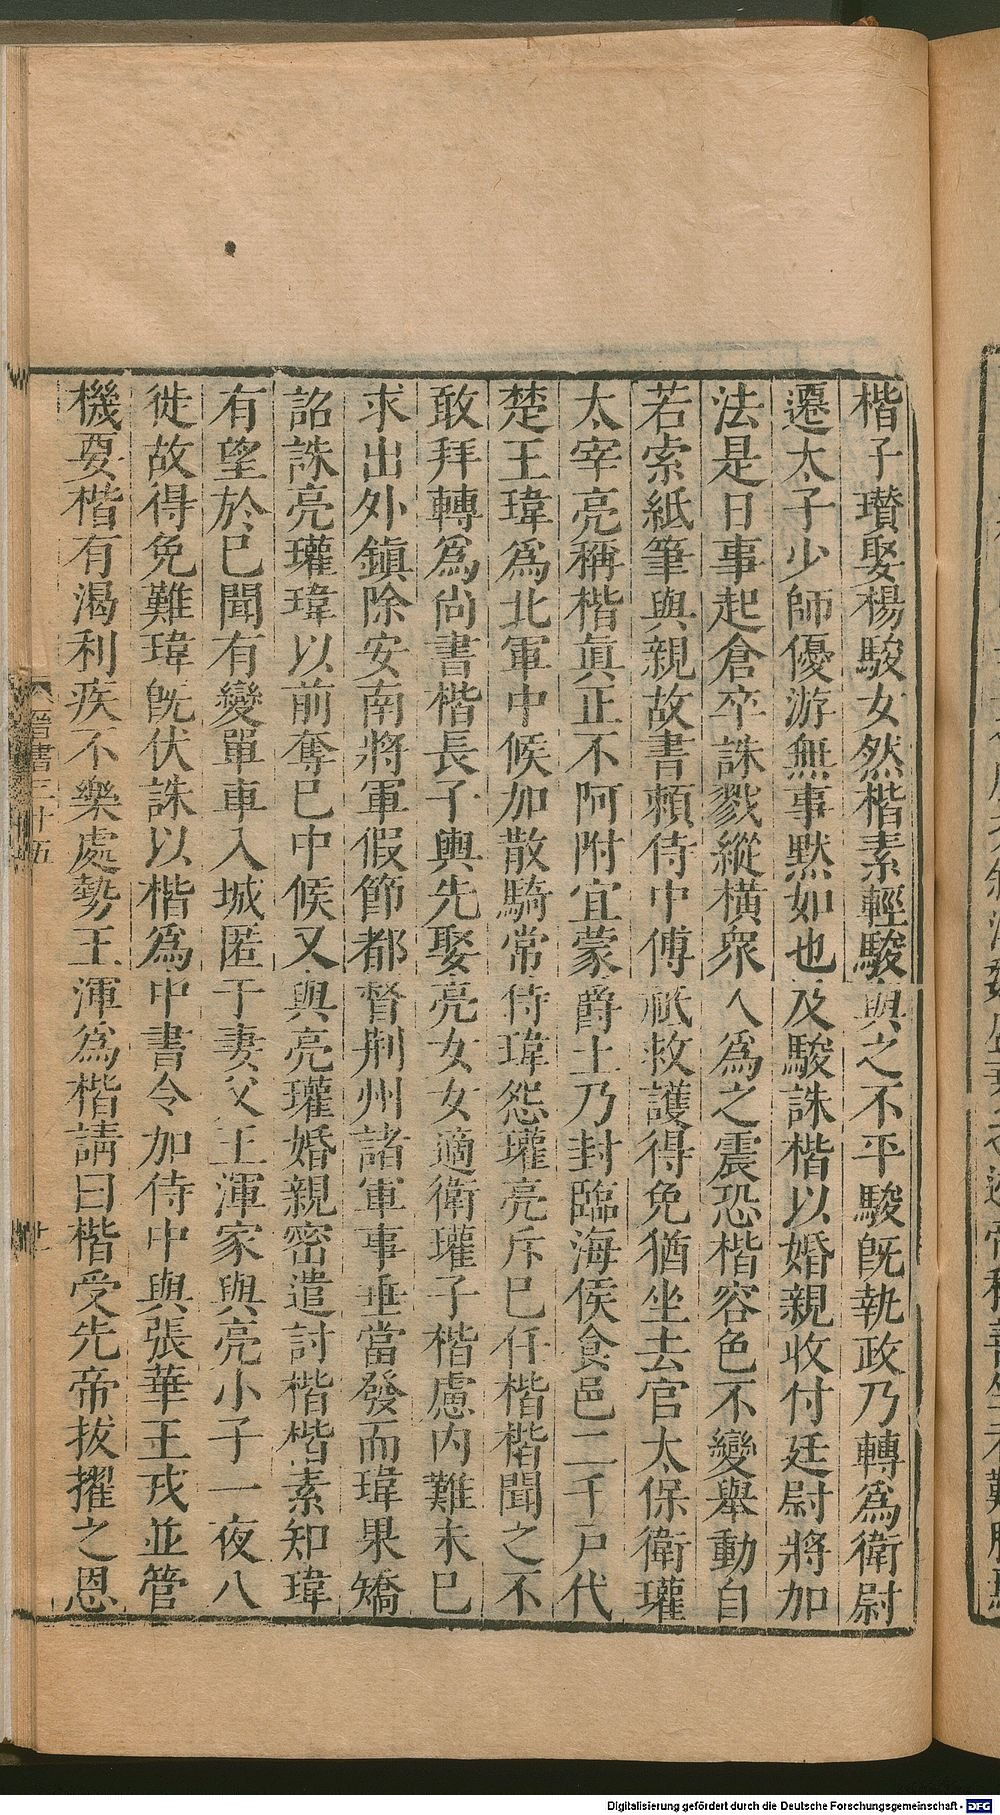 楷子瓚娶楊駿女然楷素輕駿與之不平駿旣執政乃轉爲衛尉
遷太子少師優游無事默如也及駿誅楷以婚親收付廷尉將加
法是日事起倉卒誅戮縱橫衆人爲之震恐楷容色不變舉動自
若索紙筆與親故書賴侍中傅祗救護得免猶坐去官太保衛瓘
太宰亮稱楷眞正不阿附宜蒙爵土乃封臨海侯食邑二千戸代
楚王瑋爲北軍中候加散騎常侍瑋怨瓘亮斥已任楷楷聞之不
敢拜轉爲尚書楷長子輿先娶亮女女適衛瓘子楷慮內難未已
求出外鎮除安南將軍假節都督荆州諸軍事垂當發而瑋果矯
詔誅亮瓘瑋以前奪已中候又與亮瓘婚親密遣討楷楷素知瑋
有望於已聞有變單車入城匿于妻父王渾家與亮小子一夜八
徙故得免難瑋旣伏誅以楷爲中書令加侍中與張華王戎並管
機要楷有渴利疾不樂處勢王渾爲楷請曰楷受先帝拔擢之恩
晉書三十五
十一
Digitalisierung gefördert durch die Deutsche Forschungsgemeinschaft - DFG